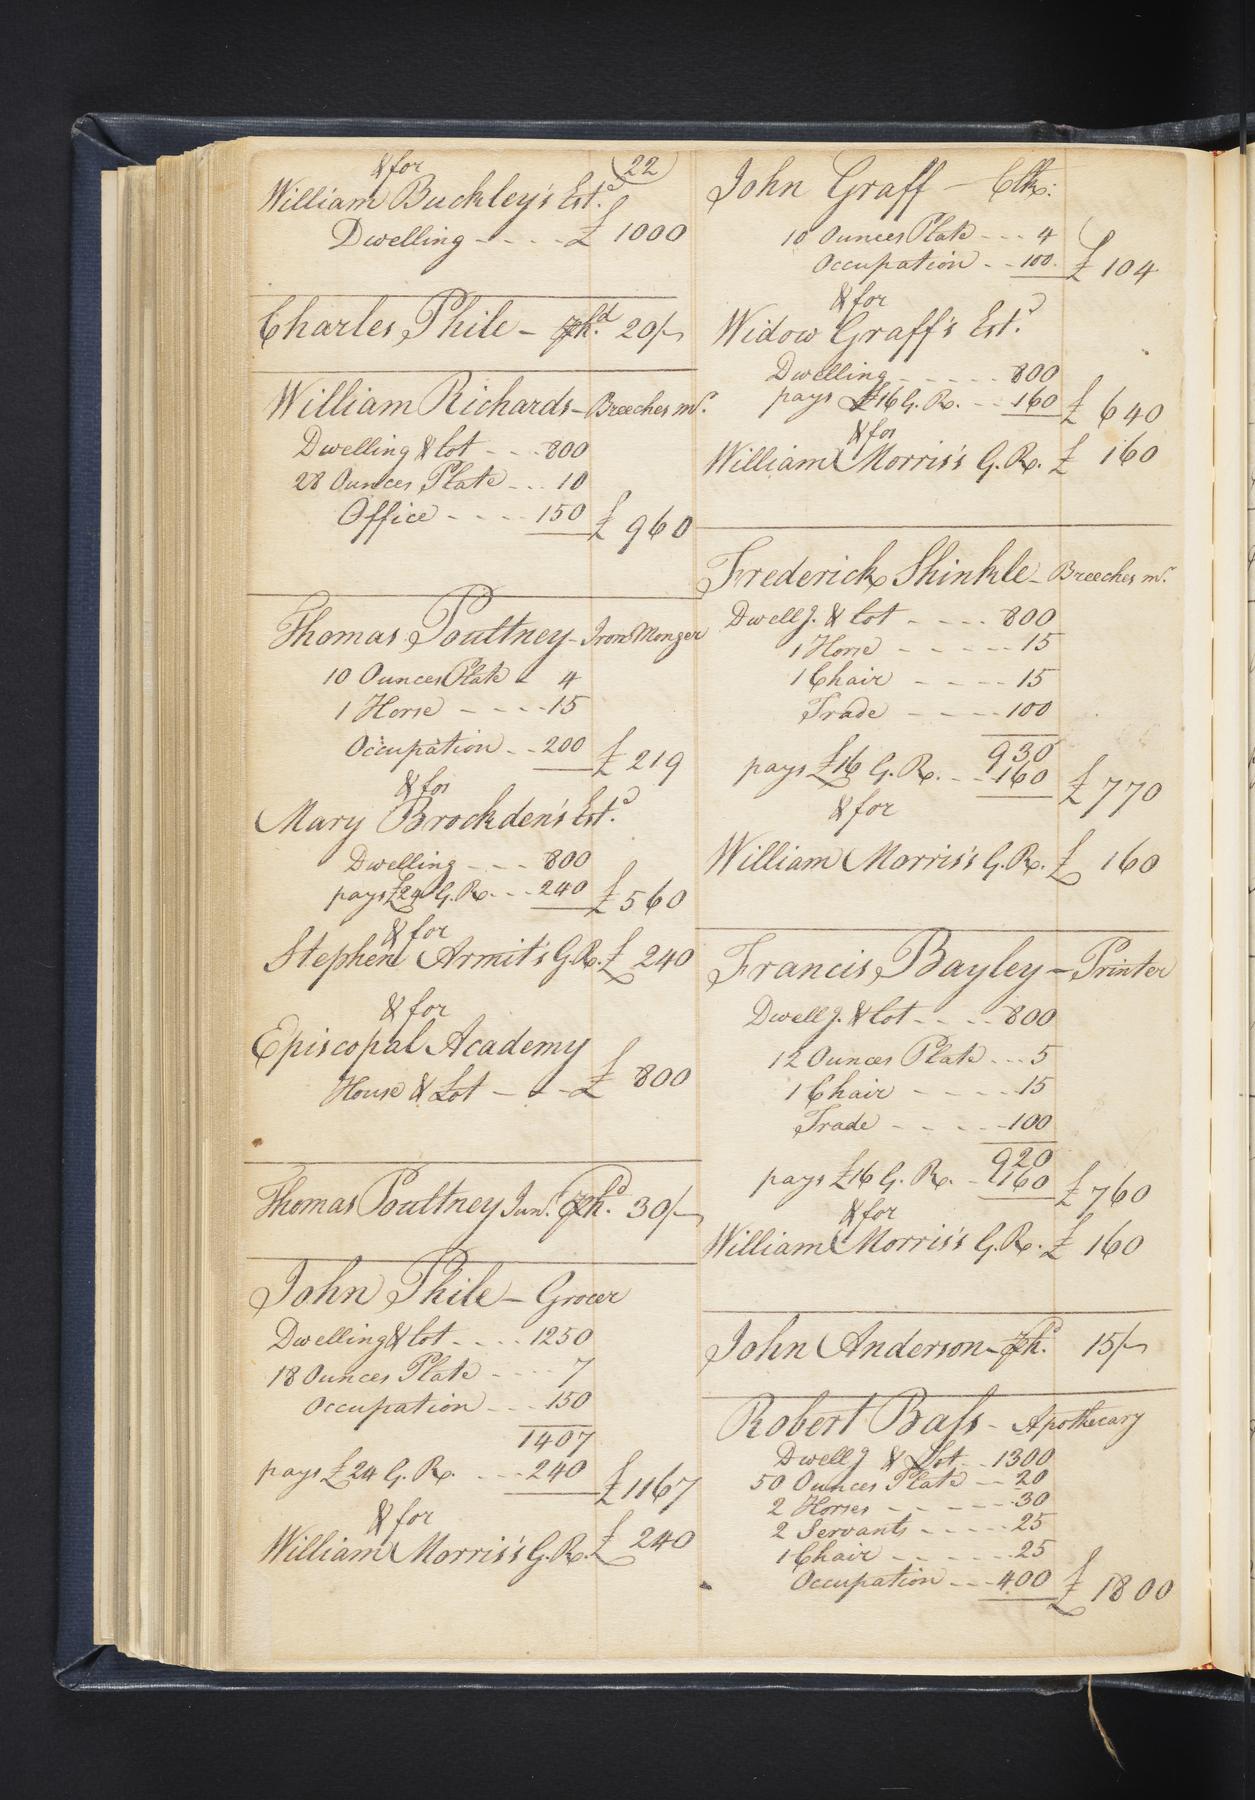 22
& for
William Buckley's Est.d
Dwelling - - - - £ 1000
Charles Phile - p.hd. 20/-
William Richards - Breeches mr.
Dwelling & lot - - - 800
28 Ounces Plate - - - 10
Office - - - - 150 £ 960
Thomas Poultney - Iron Monger
10 Ounces Plate - 4
1 Horse - - - - 15
Occupation - - 200 £ 219
& for
Mary Brockden's Est.d
Dwelling - - - 800
pays £24 G. R. - - - 240 £ 560
& for
Stephen Armit's G.R. £ 240
& for
Episcopal Academy
House & Lot - - - £ 800
Thomas Poultney Junr. p.hd. 30/-
John Phile - Grocer
Dwelling & lot - - - - 1250
18 Ounces Plate - - - - 7
Occupation - - - 150
1407
pays £24 G. R. - - - 240 £ 1167
& for
William Morris's G.R. £ 240
John Graff - Clk:
10 Ounces Plate - - - 4
Occupation - - 100. £ 104
& for
Widow Graff's Est.d
Dwelling - - - - - 800
pays £16 G. R. - - 160 £ 640
& for
William Morris's G. R. £ 160
Frederick Shinkle - Breeches mr.
Dwellg. & lot - - - - 800
1 Horse - - - - - 15
1 Chair - - - - 15
Trade - - - - 100
930
pays £16 G. R. - - 160 £ 770
& for
William Morris's G. R. £ 160
Francis Bayley - Printer
Dwellg. & lot - - - - 800
12 Ounces Plate - - - 5
1 Chair - - - - 15
Trade - - - - - 100
920
pays £16 G. R. - 160 £ 760
& for
William Morris's G. R. £ 160
John Anderson - p.hd. 15/-
Robert Bass - Apothecary
Dwellg & Lot - - 1300
50 Ounces Plate - - 20
2 Horses - - - - - - 30
2 Servants - - - - - 25
1 Chair - - - - - - 25
Occupation - - - 400 £ 1800